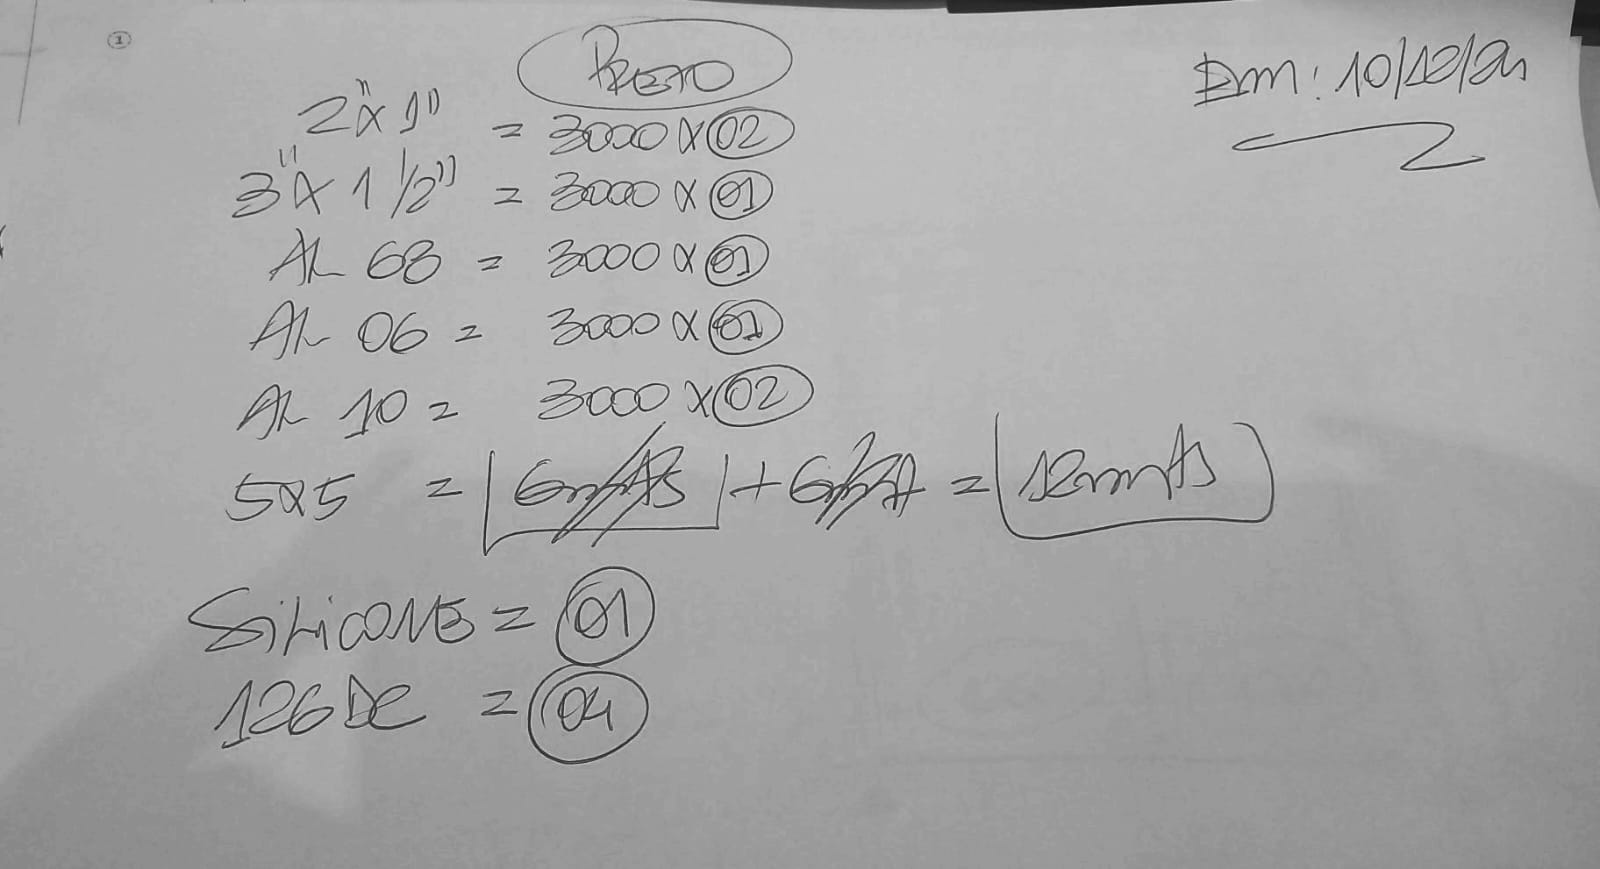 1
PRETO
Em: 10/12/24
2"x1" = 3000 x 02
3"x 1 1/2" = 3000 x 01
AL 68 = 3000 x 01
AL 06 = 3000 x 01
AL 10 = 3000 x 02
5x5 = 6mts + 6mt = 12mts
SiLicONE = 01
126 DC = 04